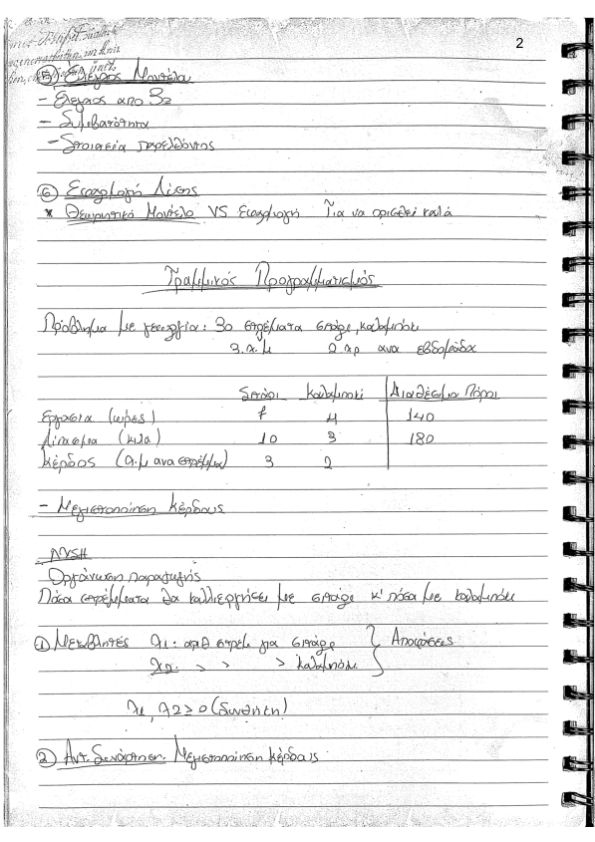 2
⑤ Έλεγχος Μοντέλα
- Έλεγχος από
- Συμβατότητα
- Στοιχεία παρελθόντος
⑥ Εφαρμογή Λύσης
* Θεωρητικό Μοντέλο VS Εφαρμογή Για να ορισθεί καλά
Γραμμικός Προγραμματισμός
Πρόβλημα με γεωργία: 30 στρέματα σιτάρι, καλαμπόκι
3 χ.μ 2 χρ ανα εβδομάδα
Σιτάρι Καλαμποκι Διαθέσιμα Πόροι
Εργασια (ωρες) 4 140
Λίπασμα (κιλα) 10 3 180
Κέρδος (χ.μ ανα στρέμμα) 3 2
- Μεγιστοποίηση Κέρδους
ΛΥΣΗ
Οργάνωση παραγωγής
Πόσα στρέμματα θα καλλιεργήσει με σιτάρι κ' πόσα με καλαμπόκι
① Μεταβλητές χ1: αριθ στρεμ για σιτάρι } Αποφάσεις
χ2: > > > καλαμπόκι
χ1, χ2 ≥ 0 (συνθήκη)
② Αντ. Συνάρτηση: Μεγιστοποίηση κέρδους